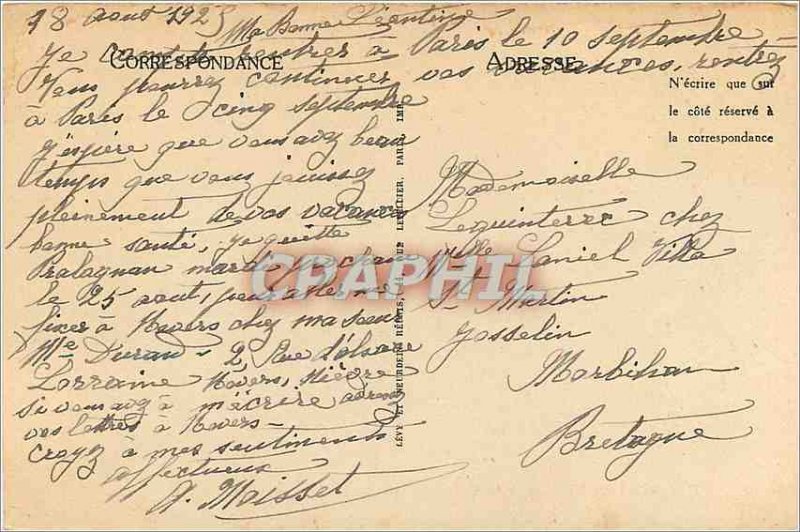 18 août 1925
Ma Bonne Léontine
Je compte rentrer à Paris le 10 septembre
CORRESPONDANCE
ADRESSE
Vous pourrez continuer vos vacances, rentrez
à Paris le cinq septembre
N'écrire que sur
le côté réservé à
la correspondance
J'espère que vous avez beau
temps que vous jouissez
pleinement de vos vacances
bonne santé, je quitte
Pralognan mardi prochain
le 25 août, pour aller me
fixer à Nevers chez ma soeur
Mme Durand - 2, Rue d'Alsace
Lorraine Nevers, Nièvre
si vous avez à m'écrire adressez
vos lettres à Nevers -
croyez à mes sentiments
affectueux
A. Maisset
LÉVY ET NEURDEIN RÉUNIS, RUE LETELLIER, PARIS, IMP.
Mademoiselle
Lequinterre chez
Mlle Laniel Villa
St Martin
Josselin
Morbihan
Bretagne
CRAPHIL